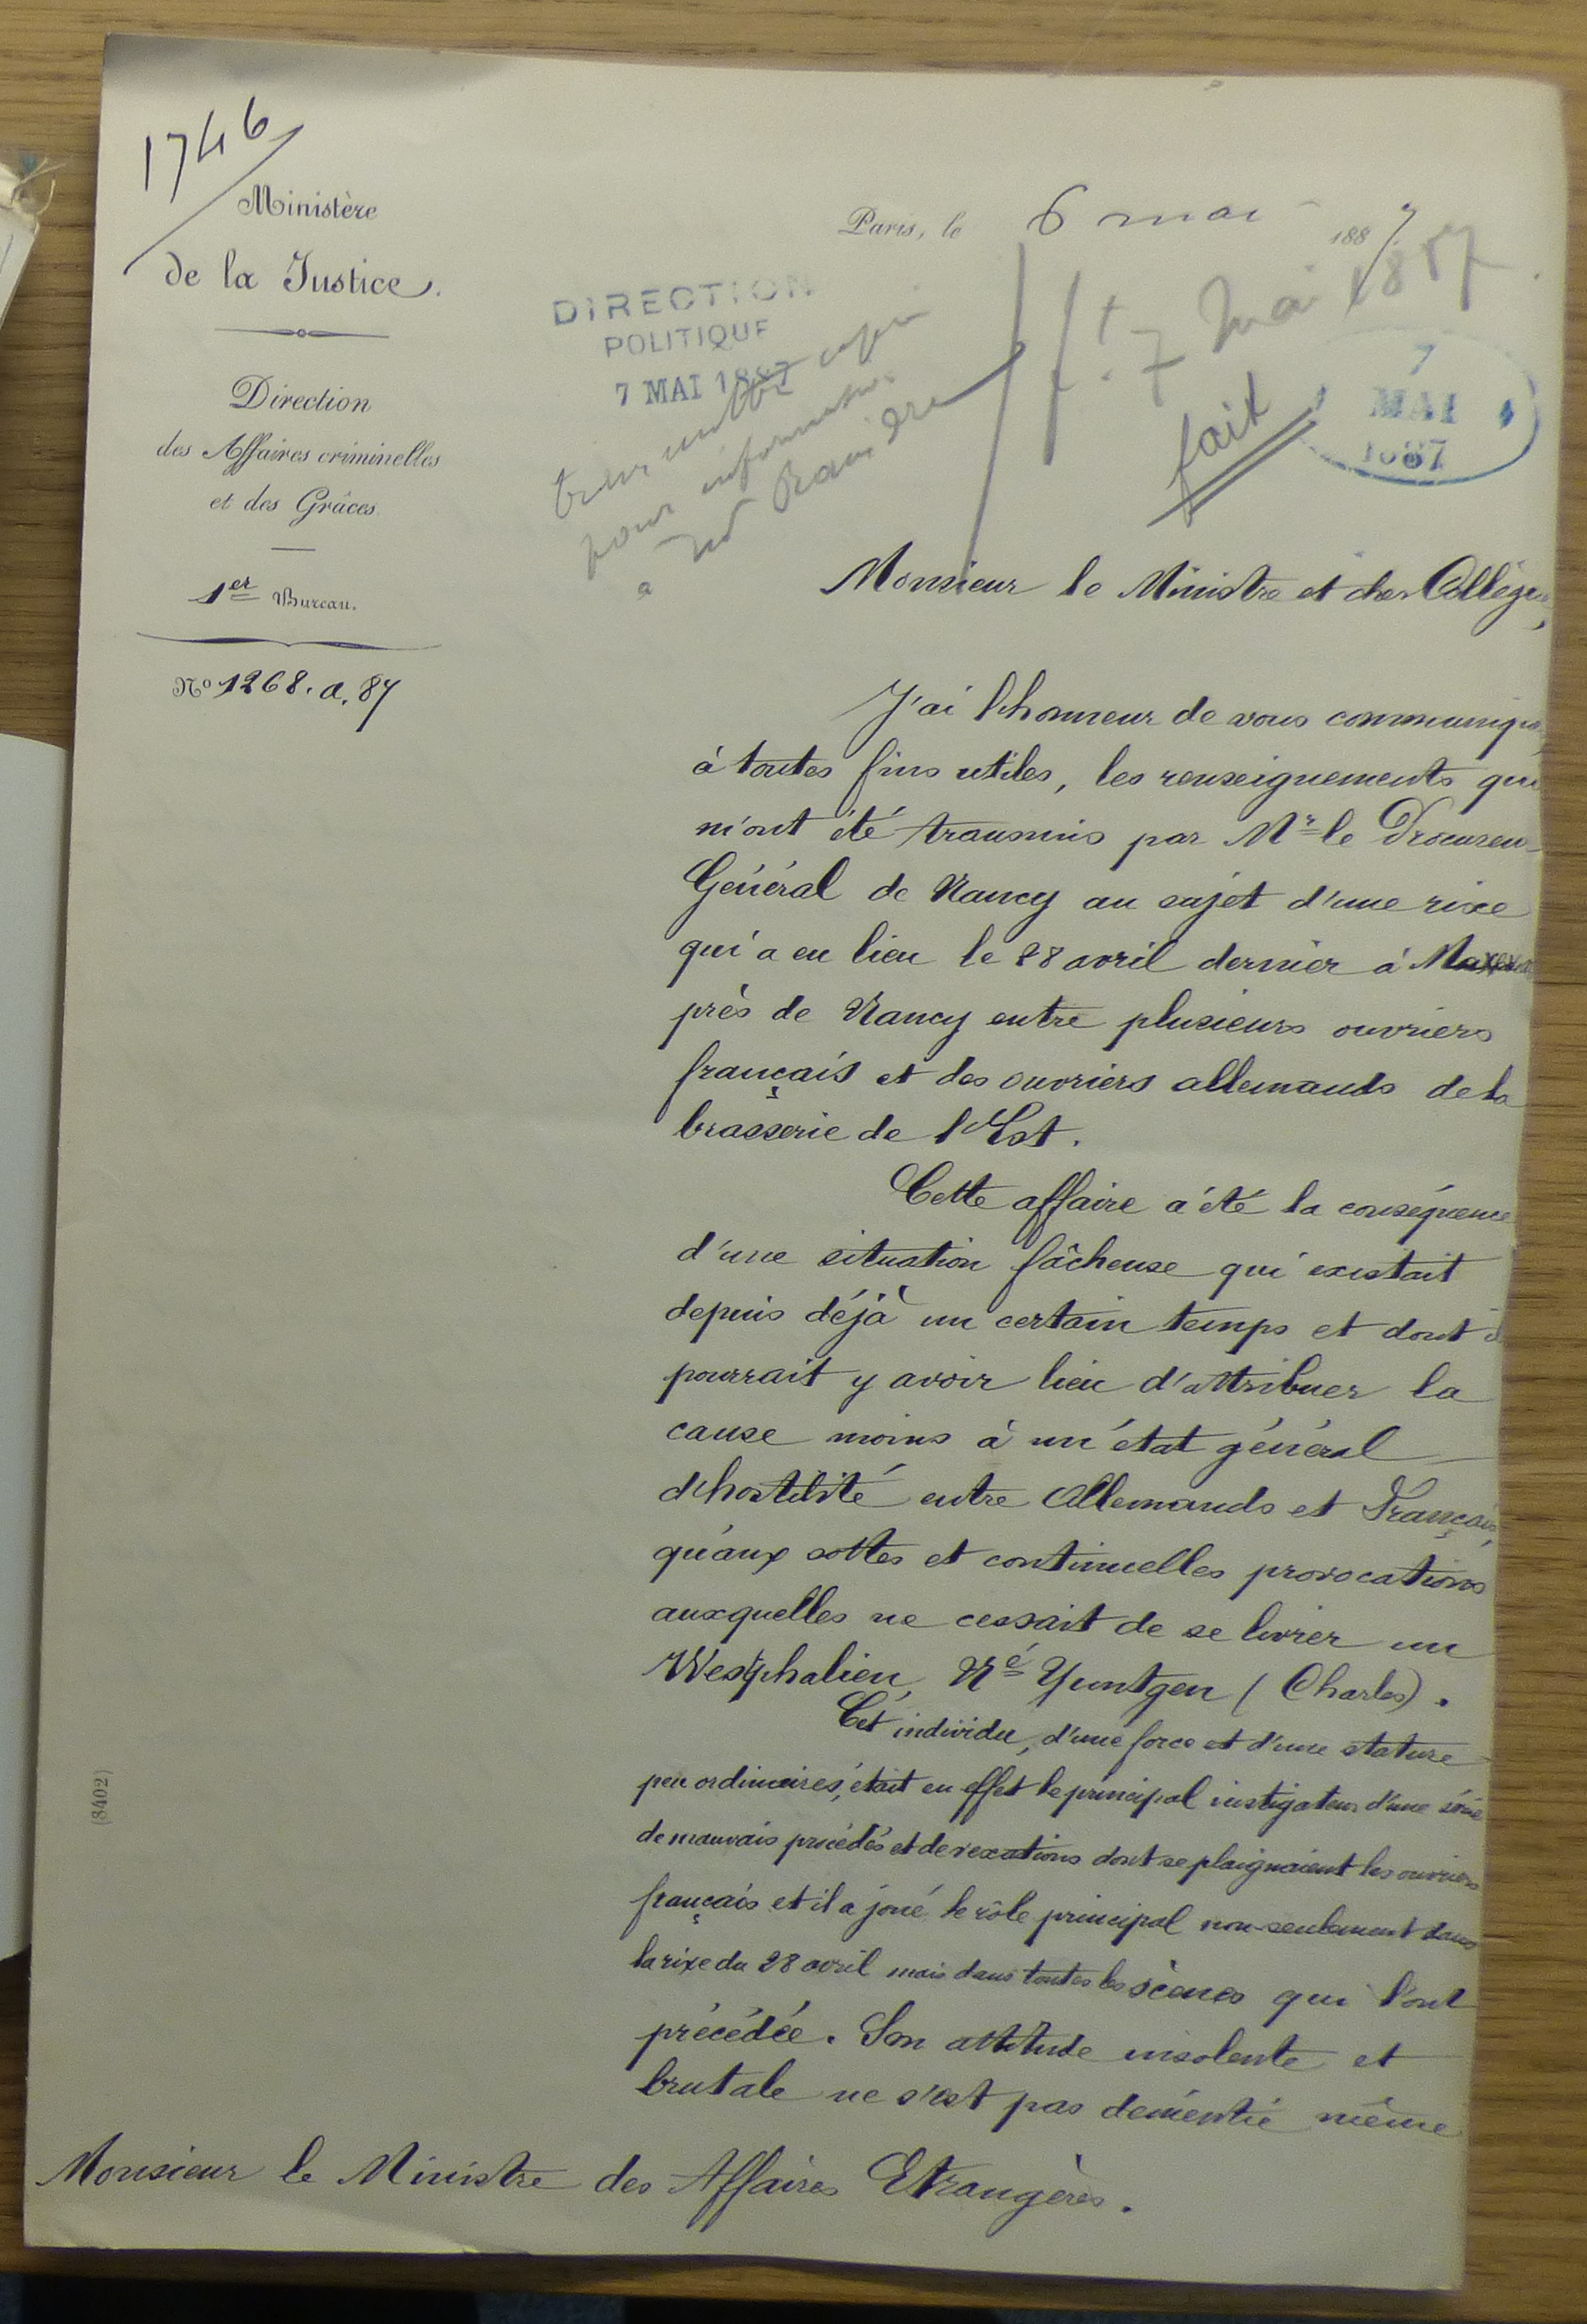 1746
Ministère
de la Justice.
Direction
des Affaires criminelles
et des Grâces
1er Bureau.
No 1268. a. 87
Paris, le 6 mai 1887
DIRECTION
POLITIQUE
7 MAI 1887
transmettre copie
pour information
a
ft. 7 Mai 1887
fait
7
MAI
1887
Monsieur le Ministre et cher Collègue,
J'ai l'honneur de vous communiquer,
à toutes fins utiles, les renseignements qui
m'ont été transmis par Mr le Procureur
Général de Nancy au sujet d'une rixe
qui a eu lieu le 28 avril dernier à
près de Nancy entre plusieurs ouvriers
français et des ouvriers allemands de la
brasserie de l'Est.
Cette affaire a été la conséquence
d'une situation fâcheuse qui existait
depuis déjà un certain temps et dont il
pourrait y avoir lieu d'attribuer la
cause moins à un état général
d'hostilité entre Allemands et Français,
qu'aux sottes et continuelles provocations
auxquelles ne cessait de se livrer un
Westphalien, Né Yuntgen (Charles).
Cet individu, d'une force et d'une stature
peu ordinaires, était en effet le principal instigateur d'une série
de mauvais procédés et de vexations dont se plaignaient les ouvriers
français et il a joué le rôle principal non-seulement dans
la rixe du 28 avril mais dans toutes les scènes qui l'ont
précédée. Son attitude insolente et
brutale ne s'est pas démentie même
Monsieur le Ministre des Affaires Etrangères.
(8402)